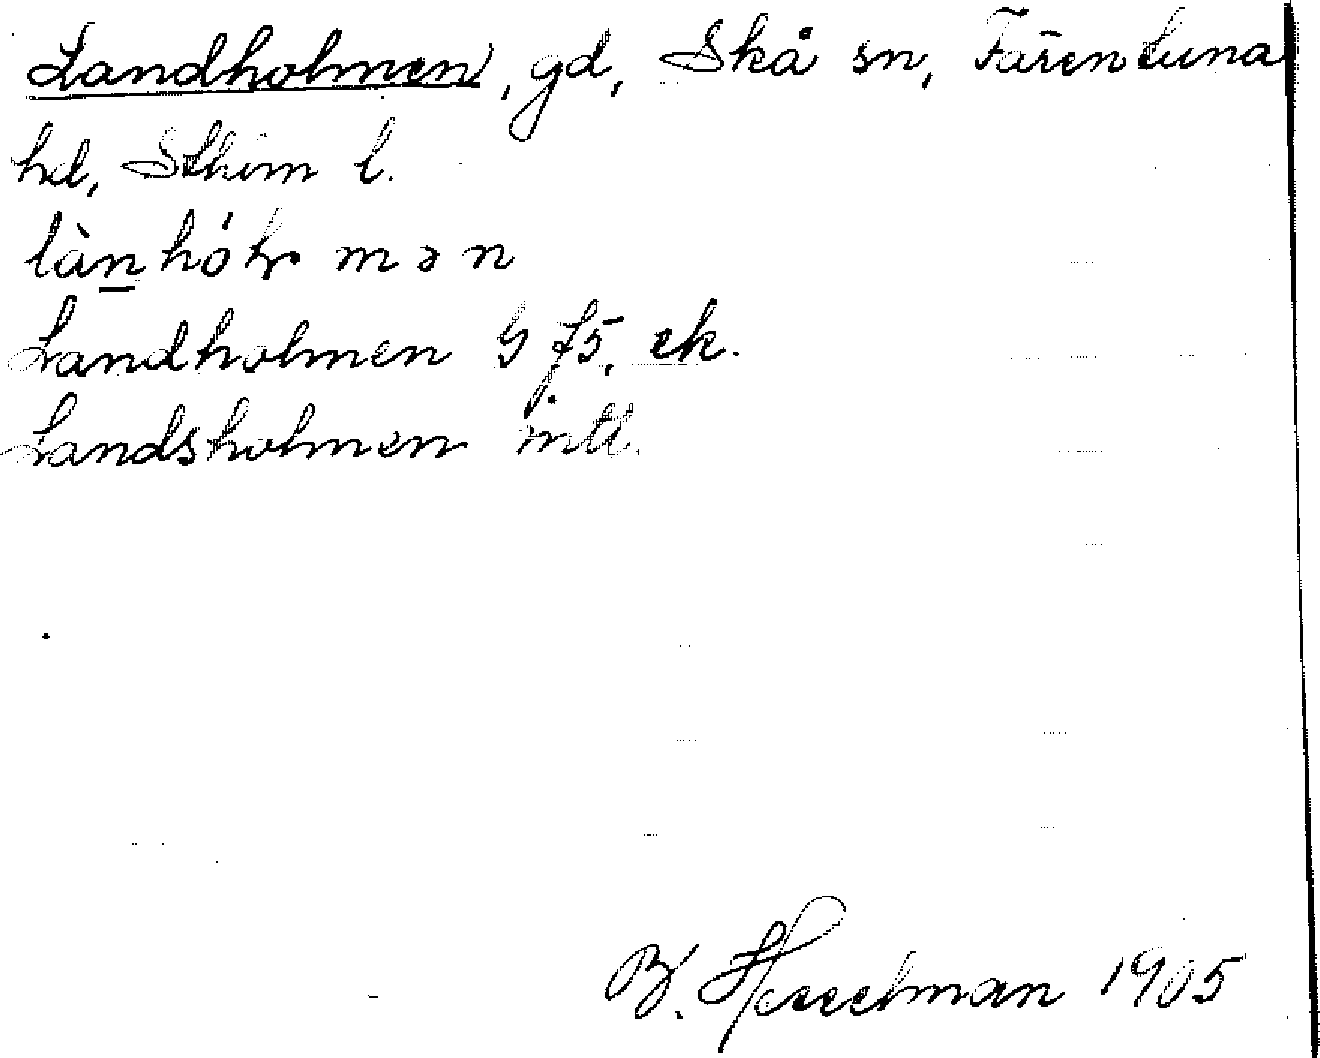 Landholmen, gd, Skå sn, Färentuna
hd, Sthlm l.
Landholmen G 75, ek.
Landsholmen mtl.
B. Hesselman 1905